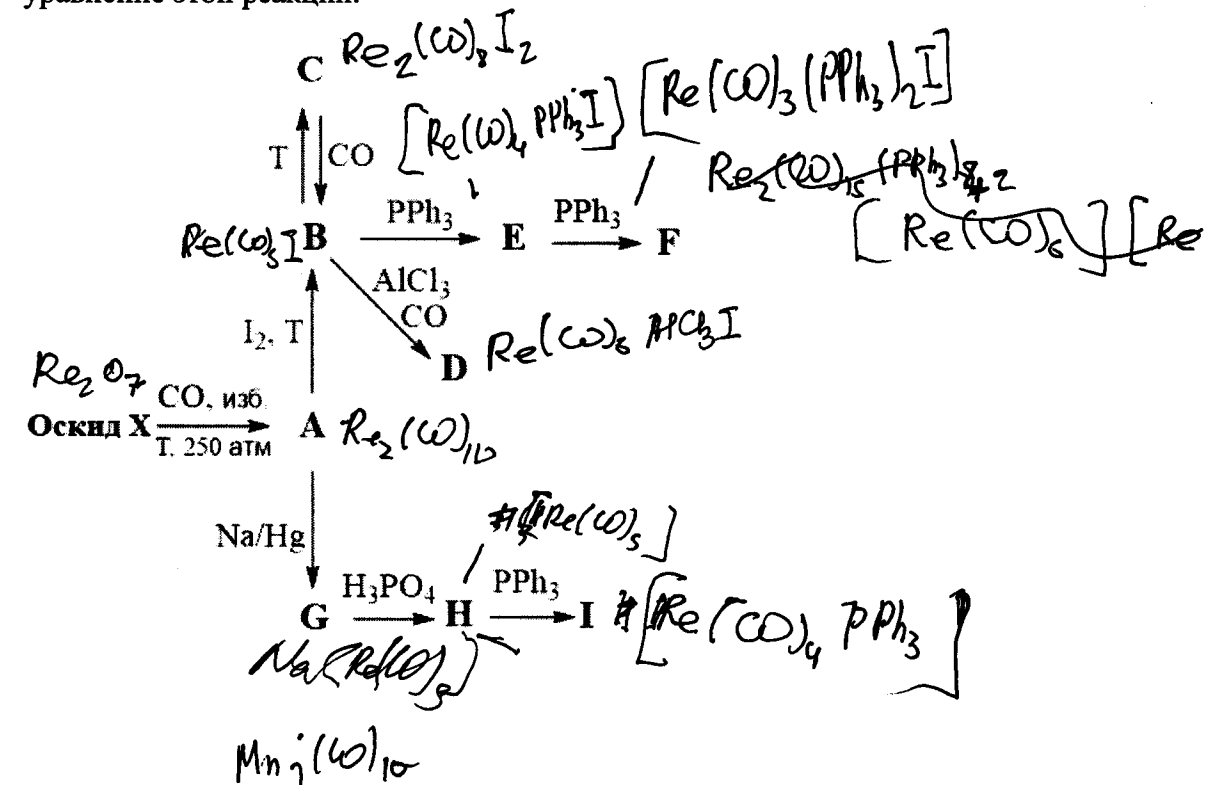 уравнение этой реакции.
C Re₂(CO)₈I₂
T CO [Re(CO)₄PPh₃I] [Re(CO)₃(PPh₃)₂I]
Re(CO)₅I B PPh₃ E PPh₃ F
[Re(CO)₆] [Re
AlCl₃
CO
I₂, T
D Re(CO)₆ AlCl₃I
Re₂O₇
Оскид X CO, изб T. 250 атм A Re₂(CO)₁₀
Na/Hg
Re(CO)₅]
G H₃PO₄ H PPh₃ I [Re(CO)₄ PPh₃]
Na[Re(CO)₅]
Mn₂(CO)₁₀